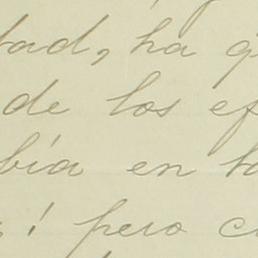 tad, ha q
de los ef
bía en ta
; ! pero c